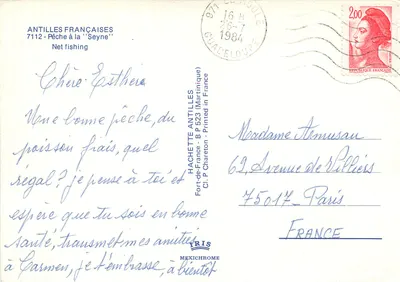 ANTILLES FRANÇAISES
7112 - Pêche à la "Seyne"
Net fishing
Chère Esthéra
Une bonne pêche, du
poisson frais, quel
régal? je pense à toi et
espère que tu sois en bonne
santé, transmet mes amitiés
à Carmen, je t'embrasse, à bientôt
HACHETTE ANTILLES
Fort-de-France - B P 523 (Martinique)
Cl. P Charenon - Printed in France
IRIS
MEXICHROME
971
16 H
1984
GUADELOUPE
2,00
REPUBLIQUE FRANÇAISE
Madame Atmusau
69, Avenue de Villiers
75017 - Paris
FRANCE